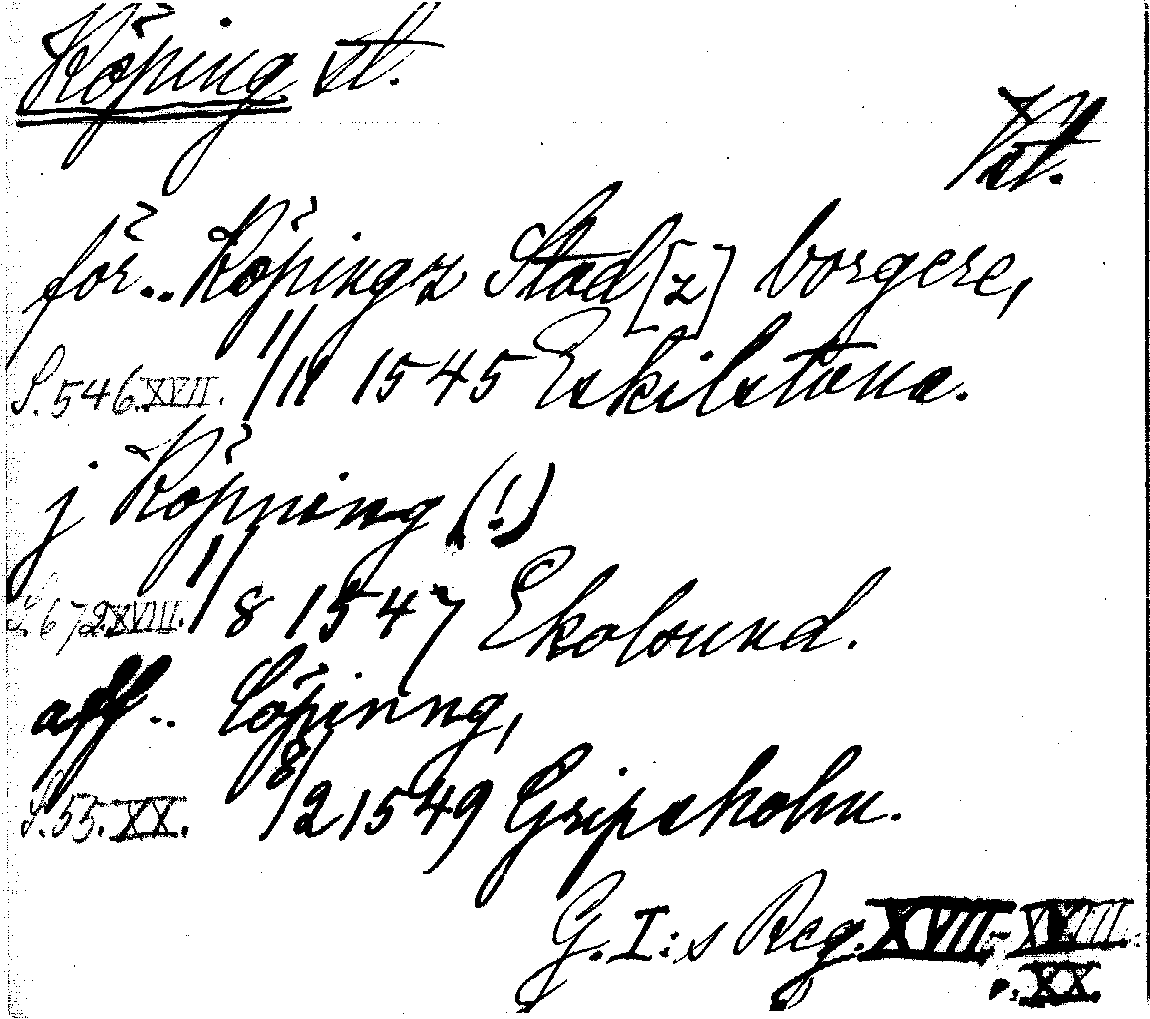 Köping st.
Vst.
för.. Köpingz Stad[z] borgere,
S. 546. XVII. 11/11 1545 Eskilstuna.
j Köpning (!)
S. 672. XVIII. 1/8 1547 Ekolsund.
aff.. Köpinng,
S. 55. XX. 8/2 1549 Gripsholm.
G. I:s Reg. XVII-XVIII.
o. XX.